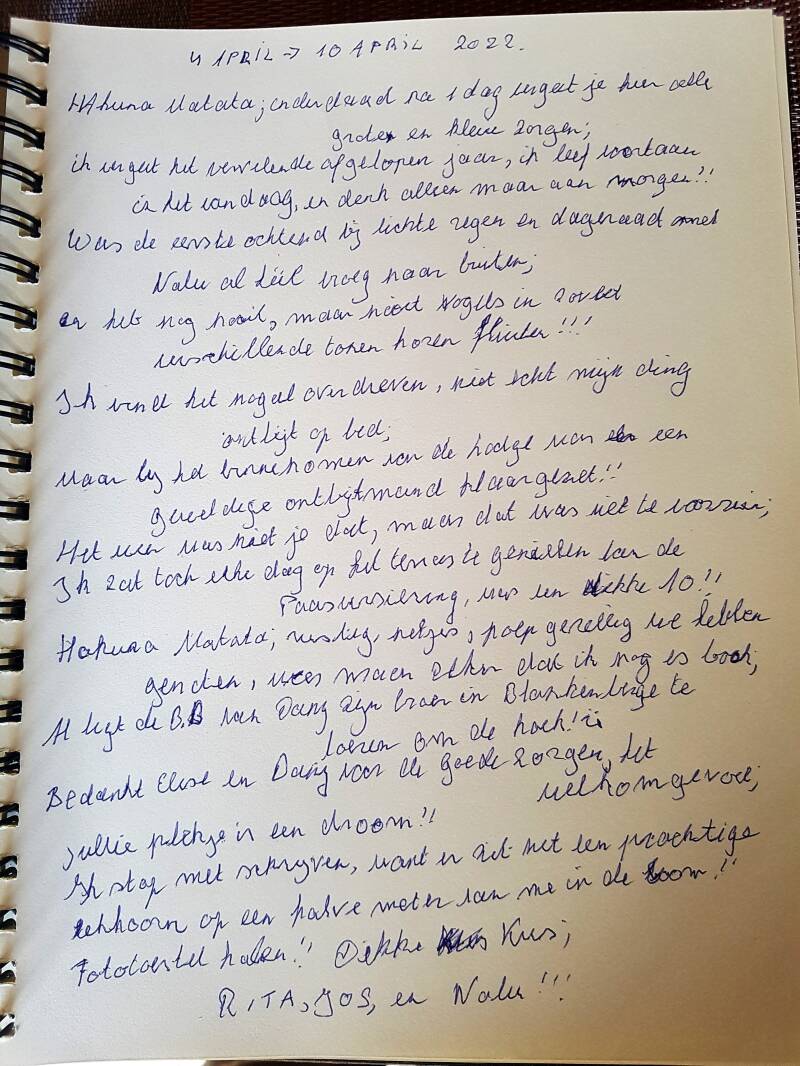 4 APRIL → 10 APRIL 2022.
HAkuna Matata; inderdaad na 1 dag vergeet je hier alle
grote en kleine zorgen;
ik vergeet het vervelende afgelopen jaar, ik leef voortaan
in het vandaag, en denk alleen maar aan morgen!!
Was de eerste ochtend bij lichte regen en dageraad met
Nalu al héél vroeg naar buiten;
en heb nog nooit, maar nooit vogels in zoveel
verschillende tonen horen fluiten!!!
Ik vind het nogal overdreven, niet echt mijn ding
ontbijt op bed;
maar bij het binnenkomen van de lodge was een
geweldige ontbijtmand klaargezet!!
Het weer was niet je dat, maar dat was niet te voorzien;
Ik zat toch elke dag op het terras te genieten van de
Paasversiering, was een dikke 10!!
Hakuna Matata; rustig, netjes, gezellig we hebben
genoten, wees maar zeker dat ik nog es boek;
Al ligt de B.B van Dany zijn broer in Blankenberge te
loeren om de hoek!
Bedankt Elise en Dany voor de goede zorgen, het
welkomgevoel;
jullie plekje is een droom!!
Ik stop met schrijven, want er zit net een prachtige
eekhoorn op een halve meter van me in de boom!!
Fototoestel halen!! Dikke Kus;
RITA, JOS, en Nalu!!!